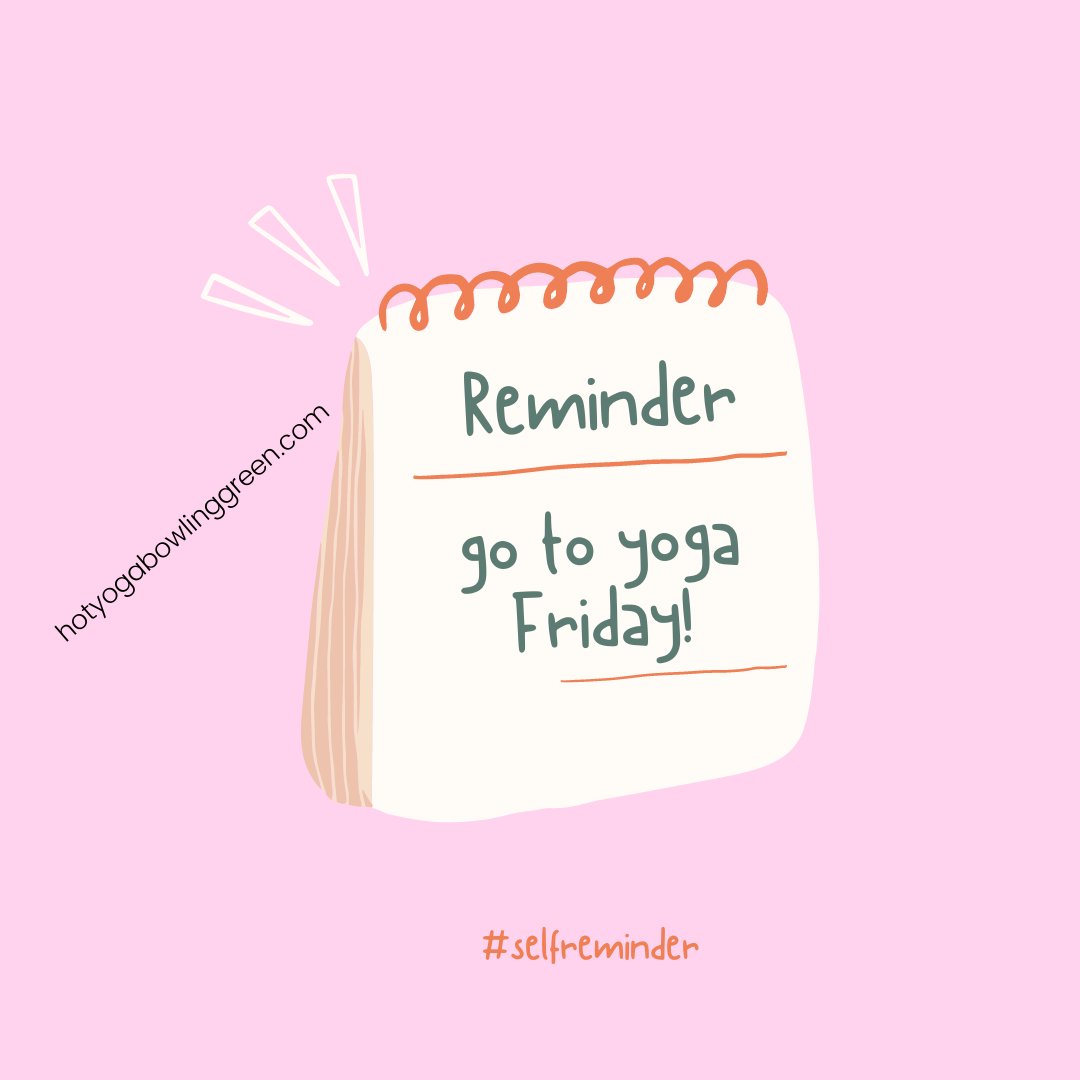 Reminder
go to yoga
Friday!
hotyogabowlinggreen.com
#selfreminder